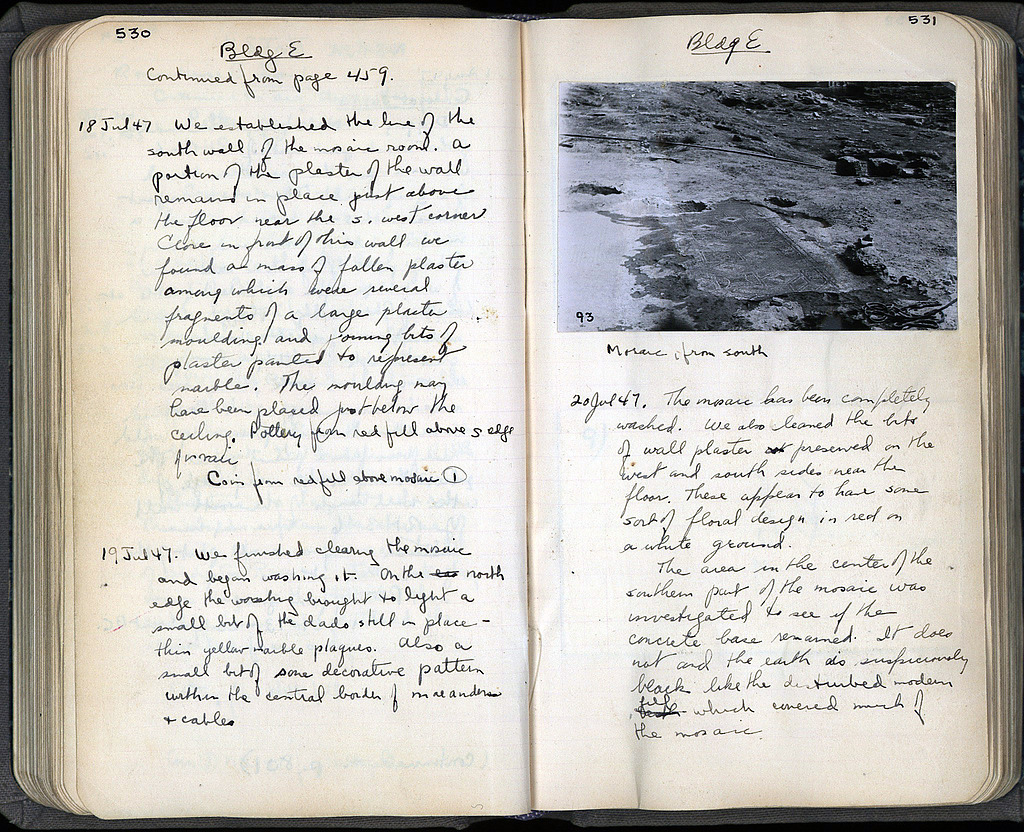 530
Bldg E
Continued from page 459.
18 Jul 47 We established the line of the
south wall of the mosaic room. A
portion of the plaster of the wall
remains in place just above
the floor near the s. west corner
Close in front of this wall we
found a mass of fallen plaster
among which were several
fragments of a large plaster
moulding and joining bits of
plaster painted to represent
marble. The moulding may
have been placed just below the
ceiling. Pottery from red fill above s edge
Coin from red fill above mosaic ①
19 Jul 47. We finished clearing the mosaic
and began washing it. On the north
edge the washing brought to light a
small bit of the dado still in place –
thin yellow marble plaques. Also a
small bit of some decorative pattern
within the central border of maeanders
+ cables
531
Bldg E
93
Mosaic, from south
20 Jul 47. The mosaic has been completely
washed. We also cleaned the bits
of wall plaster preserved on the
west and south sides near the
floor. These appear to have some
sort of floral design in red on
a white ground.
The area in the center of the
southern part of the mosaic was
investigated to see if the
concrete base remained. It does
not and the earth is suspiciously
black like the disturbed modern
fill which covered much of
the mosaic.